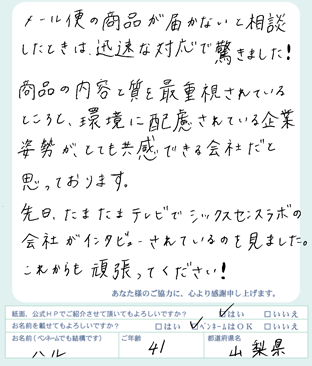 メール便の商品が届かないと相談
したときは、迅速な対応で驚きました!
商品の内容と質を最重視されている
ところと、環境に配慮されている企業
姿勢が、とても共感できる会社だと
思っております。
先日、たまたまテレビでシックスセンスラボの
会社がインタビューされているのを見ました。
これからも頑張ってください!
あなた様のご協力に、心より感謝申し上げます。
紙面、公式HPでご紹介させて頂いてもよろしいですか? ☑はい □いいえ
お名前を載せてもよろしいですか? □はい ☑ペンネームはOK □いいえ
お名前(ペンネームでも結構です) ご年齢 41 都道府県名 山梨県